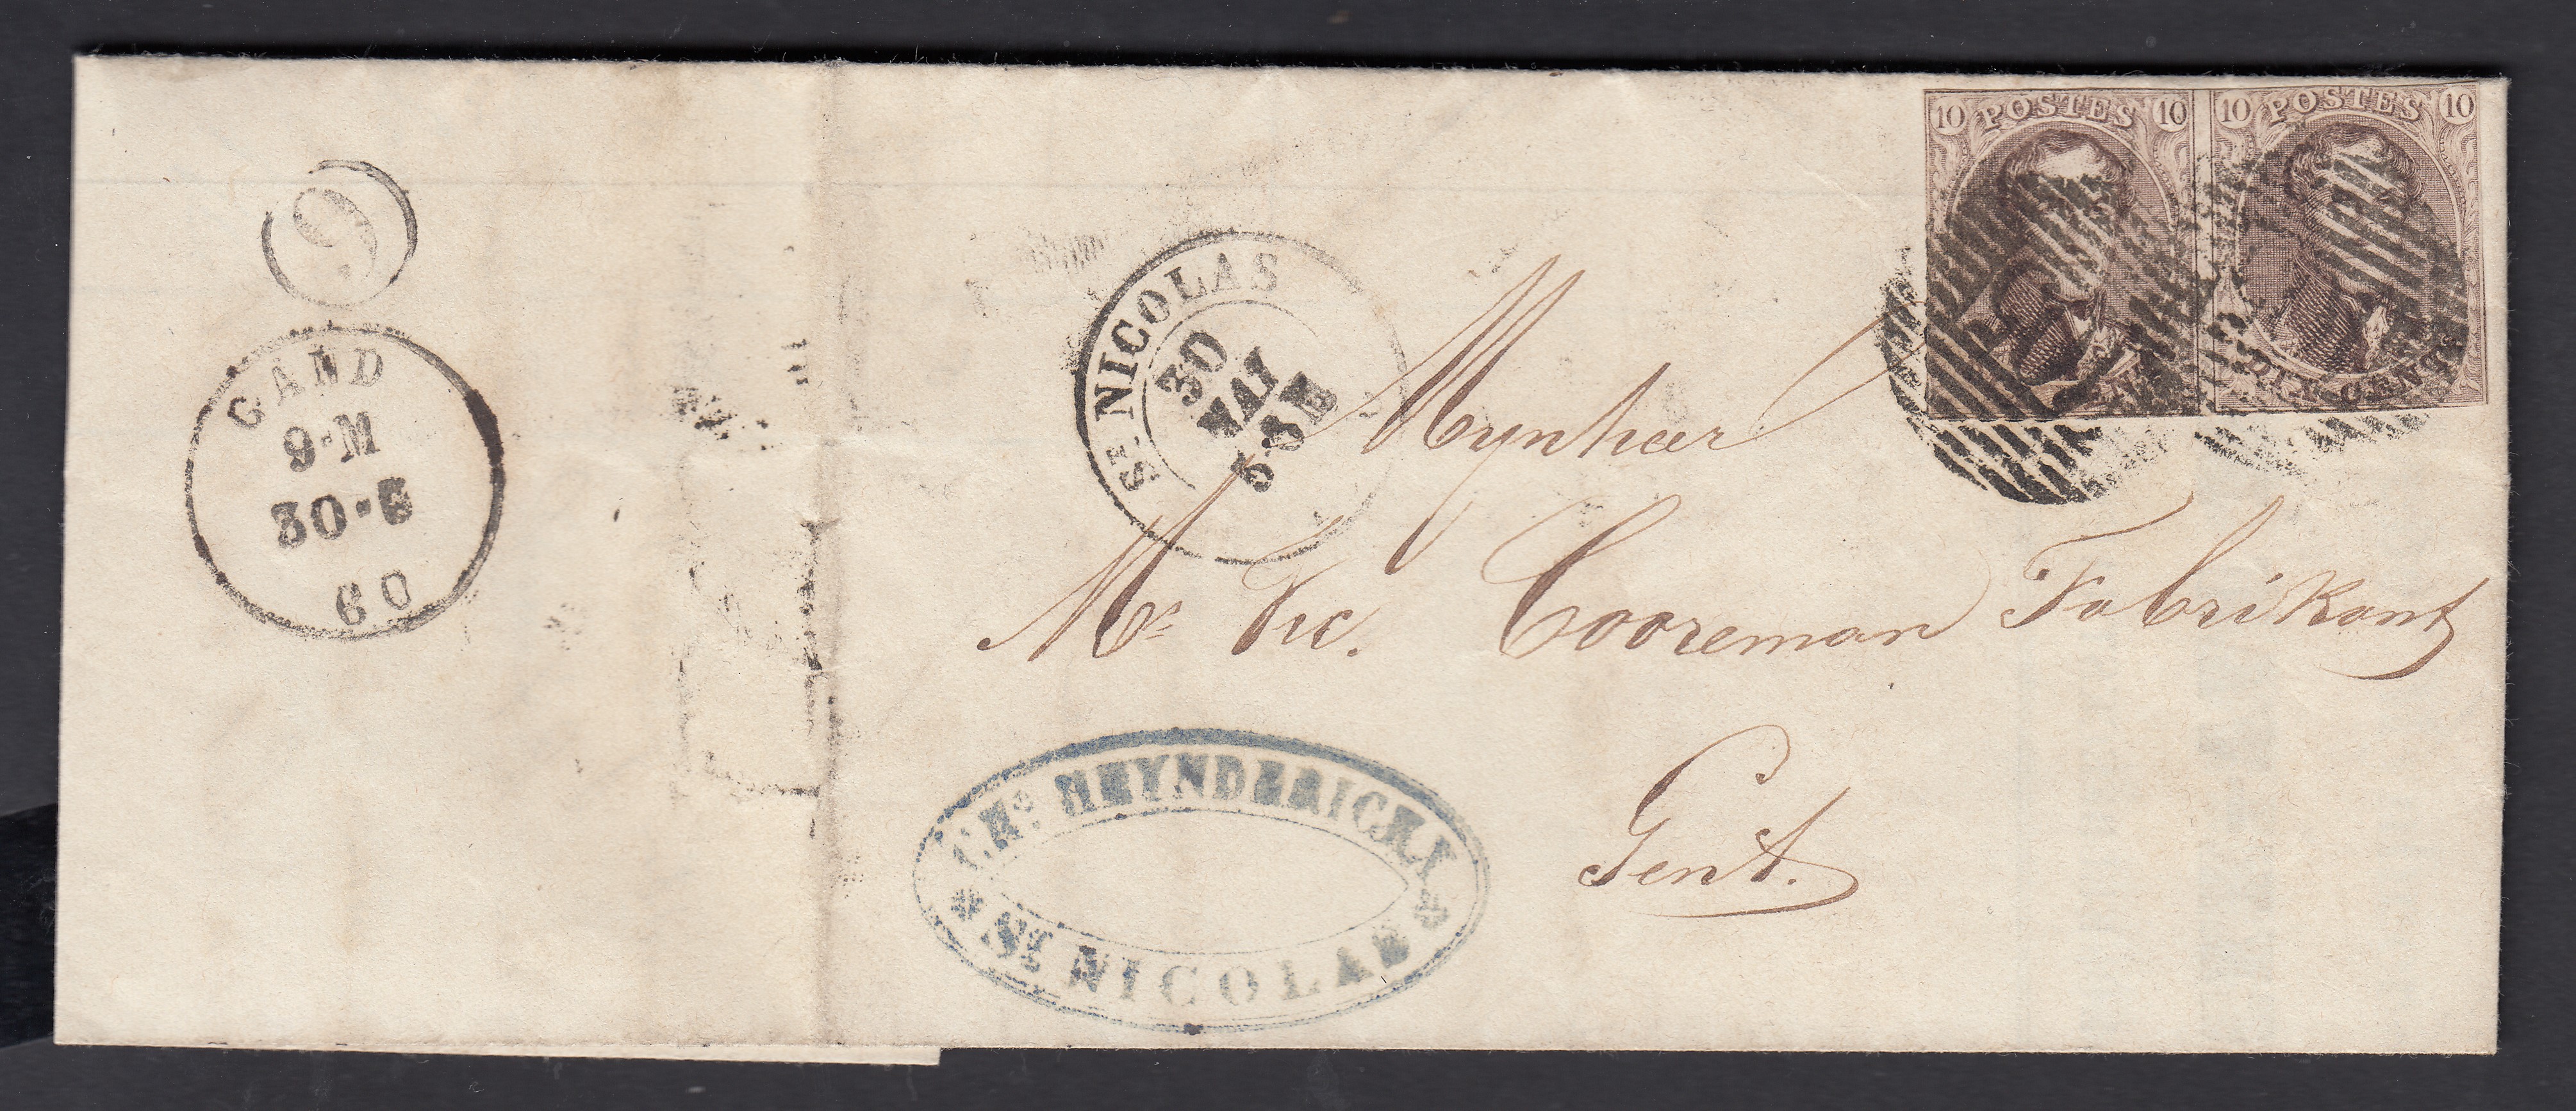 9
GAND
9·M
30·5
60
St NICOLAS
30
MAI
5-8 M
10 POSTES 10
10 POSTES 10
DIX CENT
Mynheer
Mr Vic. Cooreman Fabrikant
Gent.
CHs HEYNDERICKX
* St NICOLAS *